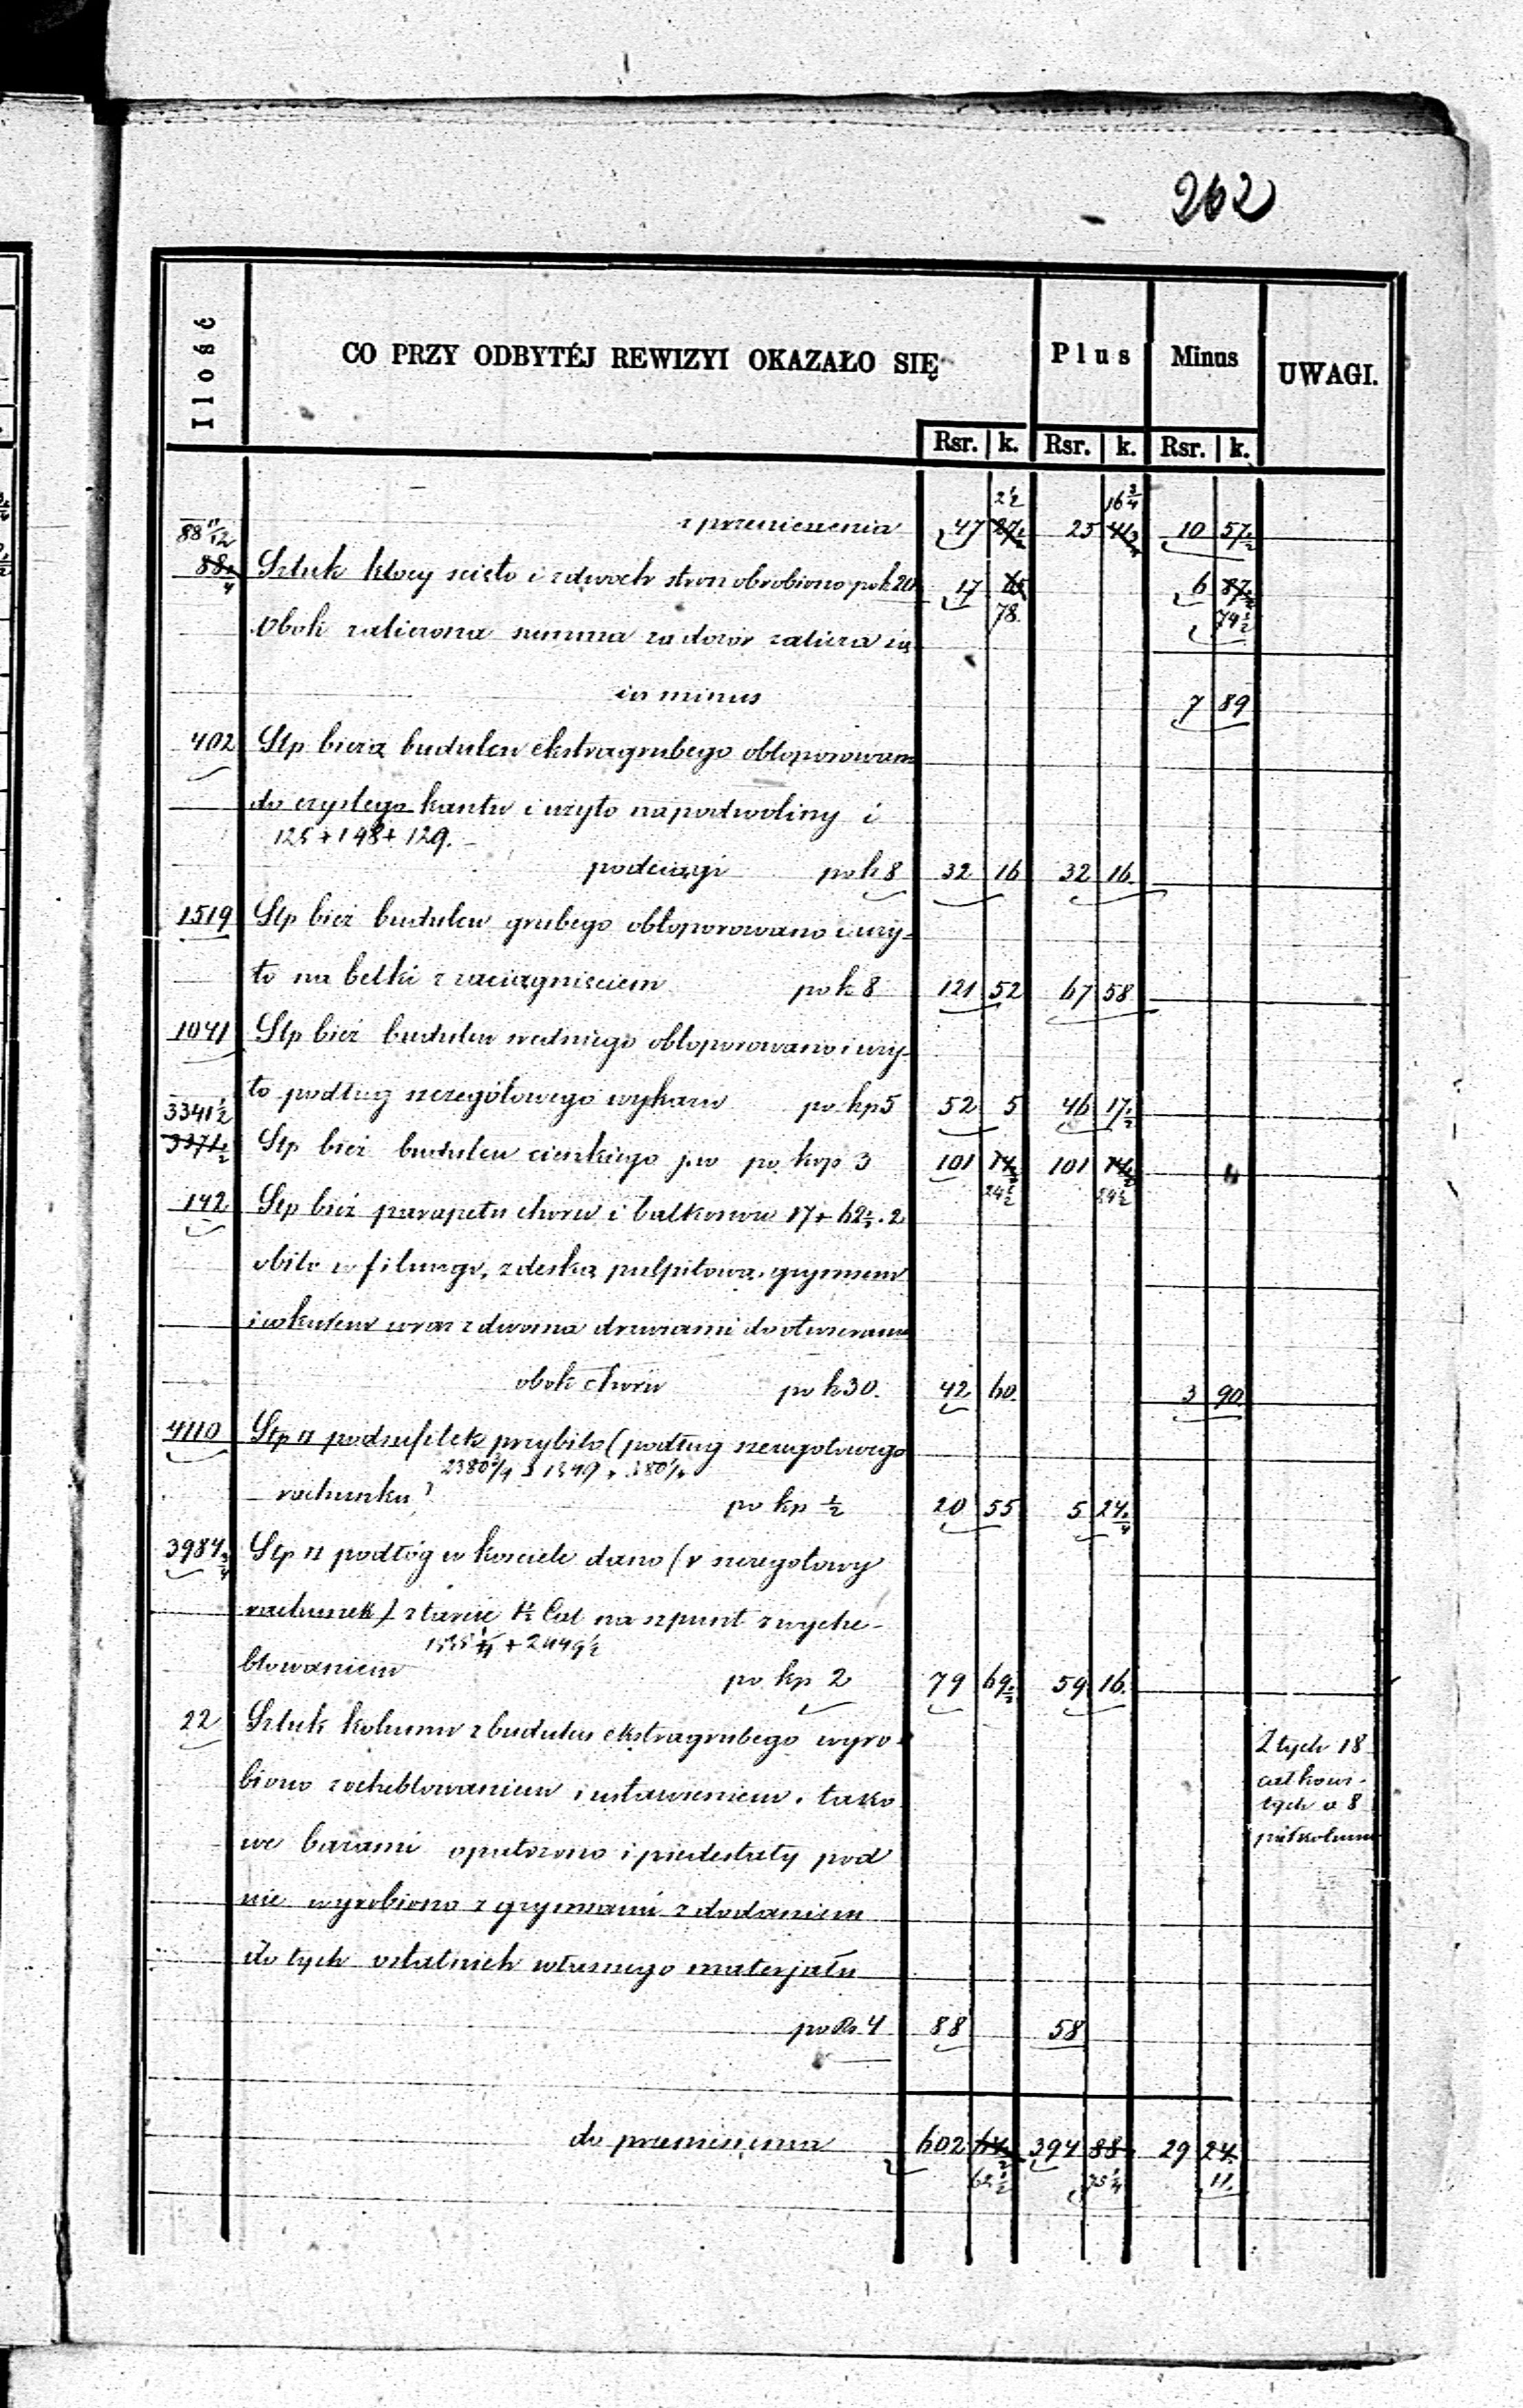 262
Ilość CO PRZY ODBYTÉJ REWIZYI OKAZAŁO SIĘ Plus Minus UWAGI.
Rsr. k. Rsr. k. Rsr. k.
2½ 16¾
88 11/12 z przeniesienia 47 27½ 25 41¾ 10 57½
88¼ Sztuk kłocy ścięto i z dwóch stron obrobiono po k 20 17 65 6 87½
78. 74½
Obok zaliczona summa za dozór zalicza się
in minus 7 89
402 Stp bieżą budulcu ekstragrubego obtoporowano
do czystego kantu i użyto na podwaliny i
125 + 148 + 129.
podciągi po k 8 32 16 32 16
1519 Stp bież budulcu grubego obtoporowano i uży-
to na belki z zaciągnięciem po k 8 121 52 67 58
1041 Stp bież budulcu średniego obtoporowano i uży-
to podług szczegółowego wykazu po kp 5 52 5 46 17½
3341½
3371½ Stp bież budulcu cienkiego j.w. po kop 3 101 14½ 101 14½
24½ 24½
142 Stp bież parapetu chóru i balkonów 17 + 62½ . 2
obito w filungi, z deską pulpitową, gzymsem
i cokułem wraz z dwoma drzwiami do otwierania
obok chóru po k 30. 42 60 3 90
4110 Stp □ podsufitek przybito (podług szczegółowego
2380¾ 1349 380¼
rachunku) po kp ½ 20 55 5 24¼
3984¾ Stp □ podłóg w kościele dano (v szczegółowy
rachunek) z tarcic 1½ Cal na szpunt z wyhe-
1535¼ + 2449½
blowaniem po kp 2 79 69½ 59 16
22 Sztuk kolumn z budulcu ekstragrubego wyro-
biono z oheblowaniem i ustawieniem, tako
we bazami opatrzono i piedestały pod
nie wyrobiono z gzymsami z dodaniem
do tych ostatnich własnego materjału
po Rs. 4 88 58
Z tych 18
całkowi-
tych a 8
półkolumn
do przeniesienia 602 64½ 394 88 29 24
62½ 75¼ 11.